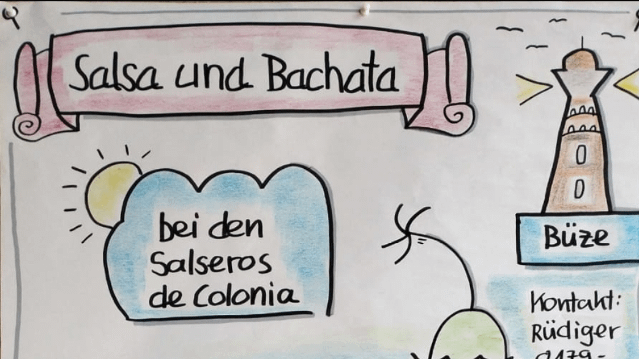 Salsa und Bachata
bei den
Salseros
de Colonia
Büze
Kontakt:
Rüdiger